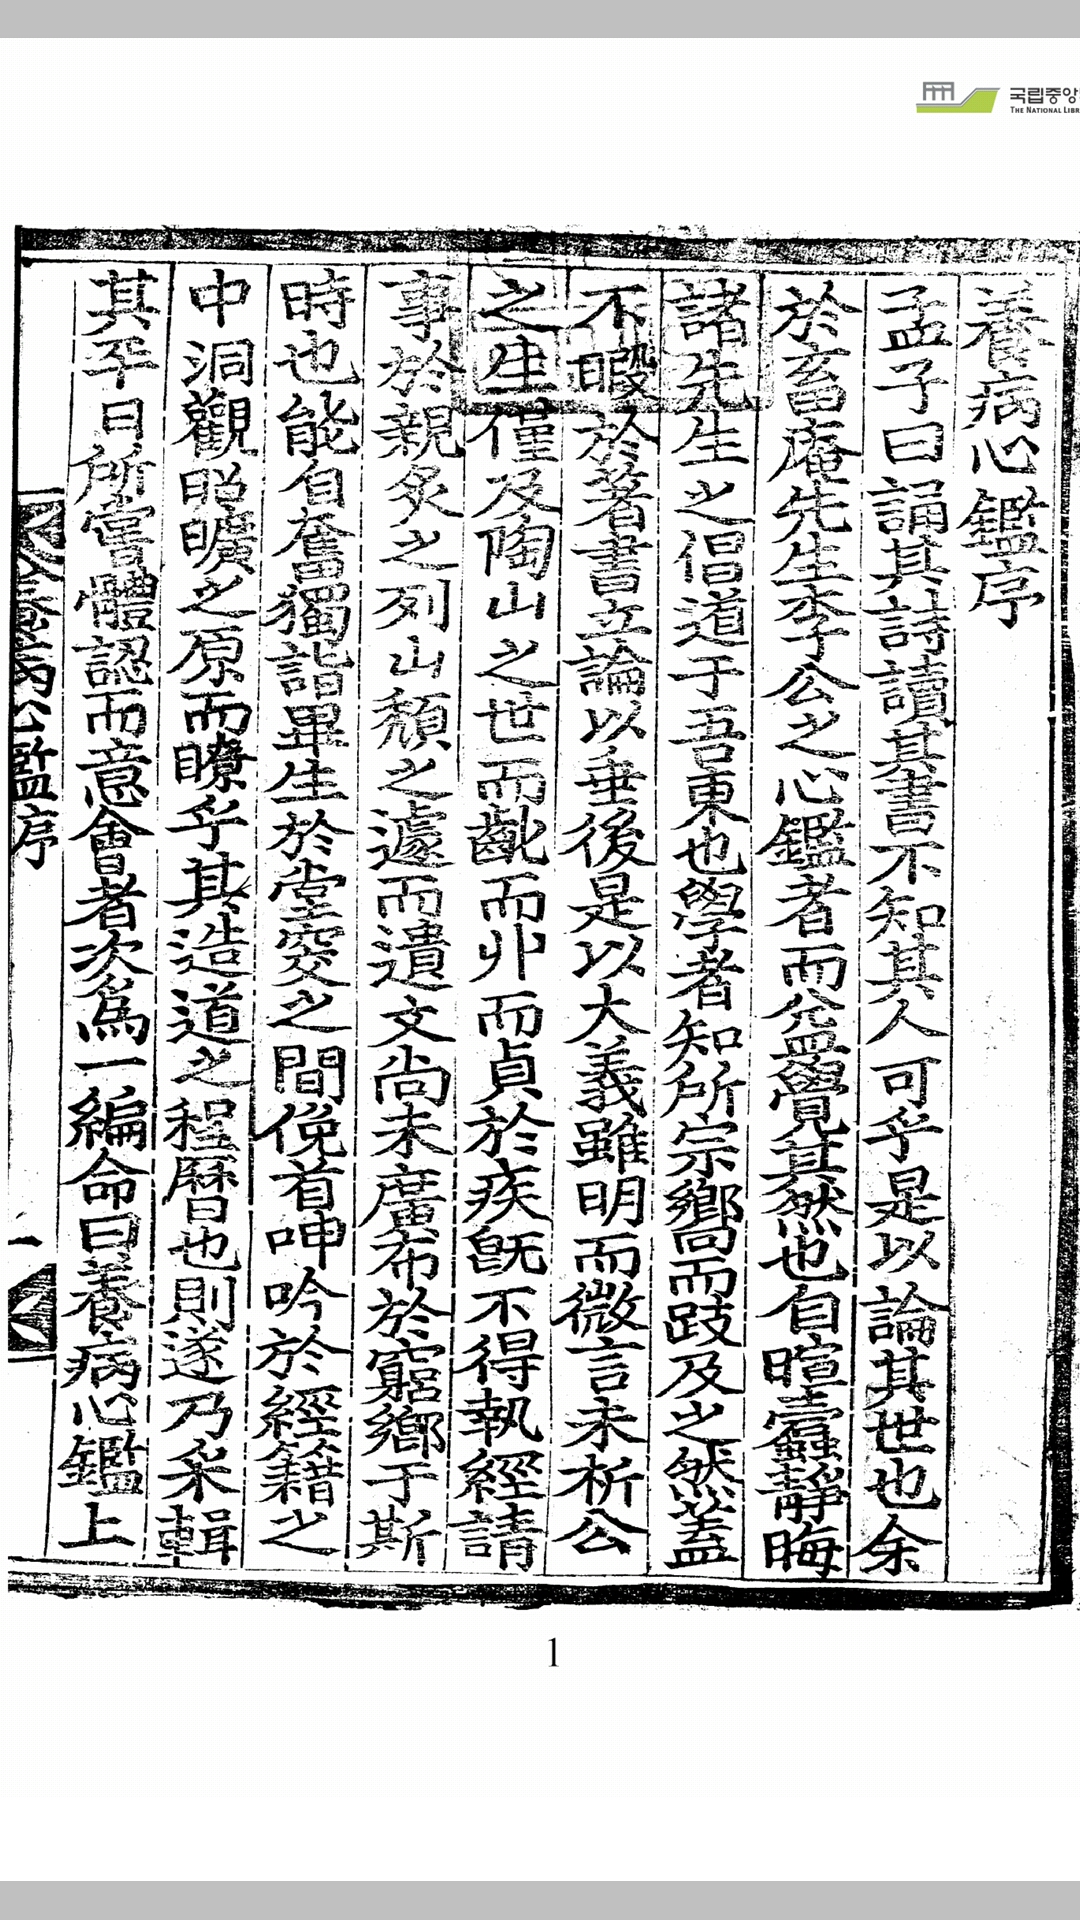 국립중앙
THE NATIONAL LIBR
養病心鑑序
孟子曰誦其詩讀其書不知其人可乎是以論其世也余
於畜庵先生李公之心鑑者而益覺其然也自暄蠹靜晦
諸先生之倡道于吾東也學者知所宗嚮而跂及之然蓋
不暇於著書立論以垂後是以大義雖明而微言未析公
之生僅及陶山之世而齔而丱而貞於疾旣不得執經請
事於親炙之列山頹之遽而遺文尚未廣布於窮鄕于斯
時也能自奮獨詣畢生於堂穾之間俛首呻吟於經籍之
中洞觀昭曠之原而瞭乎其造道之程曆也則遂乃采輯
其平日所嘗體認而意會者次爲一編命曰養病心鑑上
養病心鑑序
一
1